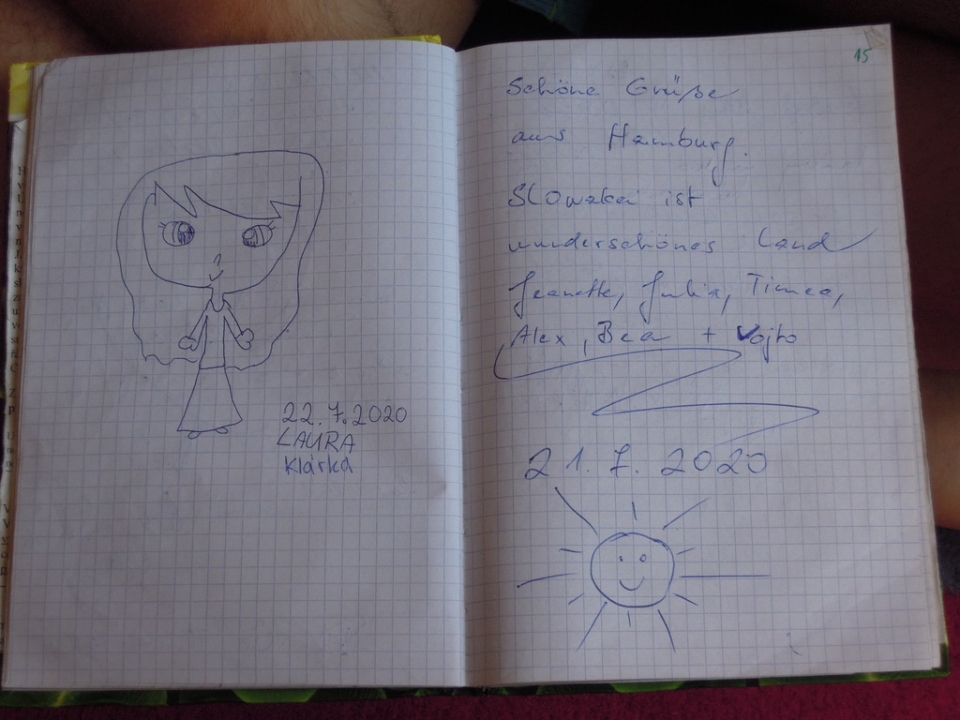 22.7.2020
LAURA
Klárka
15
Schöne Grüße
aus Hamburg.
Slowakei ist
wunderschönes Land
Jeanette, Julia, Timea,
Alex, Bea + Vojto
21.7.2020